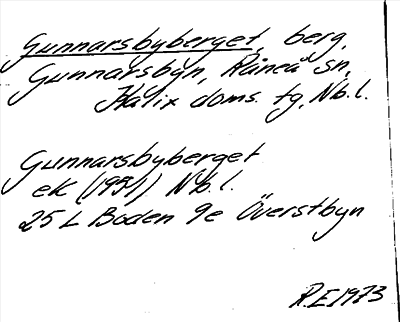 Gunnarsbyberget, berg,
Gunnarsbyn, Råneå sn,
Kalix doms. tg, Nb.l.
Gunnarsbyberget
ek (1951) Nb.l.
25 L Boden 9e Överstbyn
R.E 1973